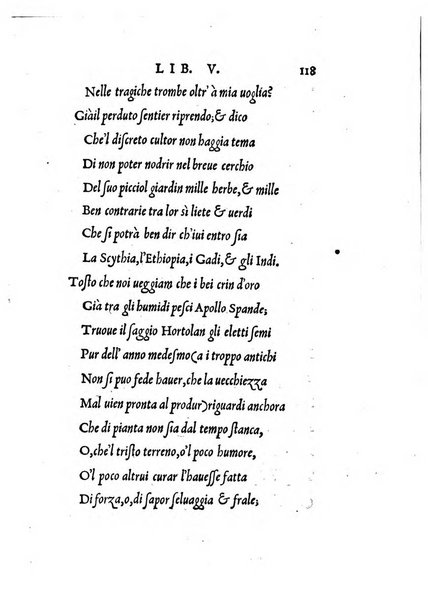 LIB. V. 118
Nelle tragiche trombe oltr' à mia uoglia?
Giàil perduto sentier riprendo; & dico
Che'l discreto cultor non haggia tema
Di non poter nodrir nel breue cerchio
Del suo picciol giardin mille herbe, & mille
Ben contrarie tra lor sì liete & uerdi
Che si potrà ben dir ch'iui entro sia
La Scythia, l'Ethiopia, i Gadi, & gli Indi.
Tosto che noi ueggiam che i bei crin d'oro
Già tra gli humidi pesci Apollo Spande;
Truoue il saggio Hortolan gli eletti semi
Pur dell' anno medesmo (a i troppo antichi
Non si puo fede hauer, che la uecchiezza
Mal uien pronta al produr) riguardi anchora
Che di pianta non sia dal tempo stanca,
O, che'l tristo terreno, o'l poco humore,
O'l poco altrui curar l'hauesse fatta
Di forza, o, di sapor seluaggia & frale;